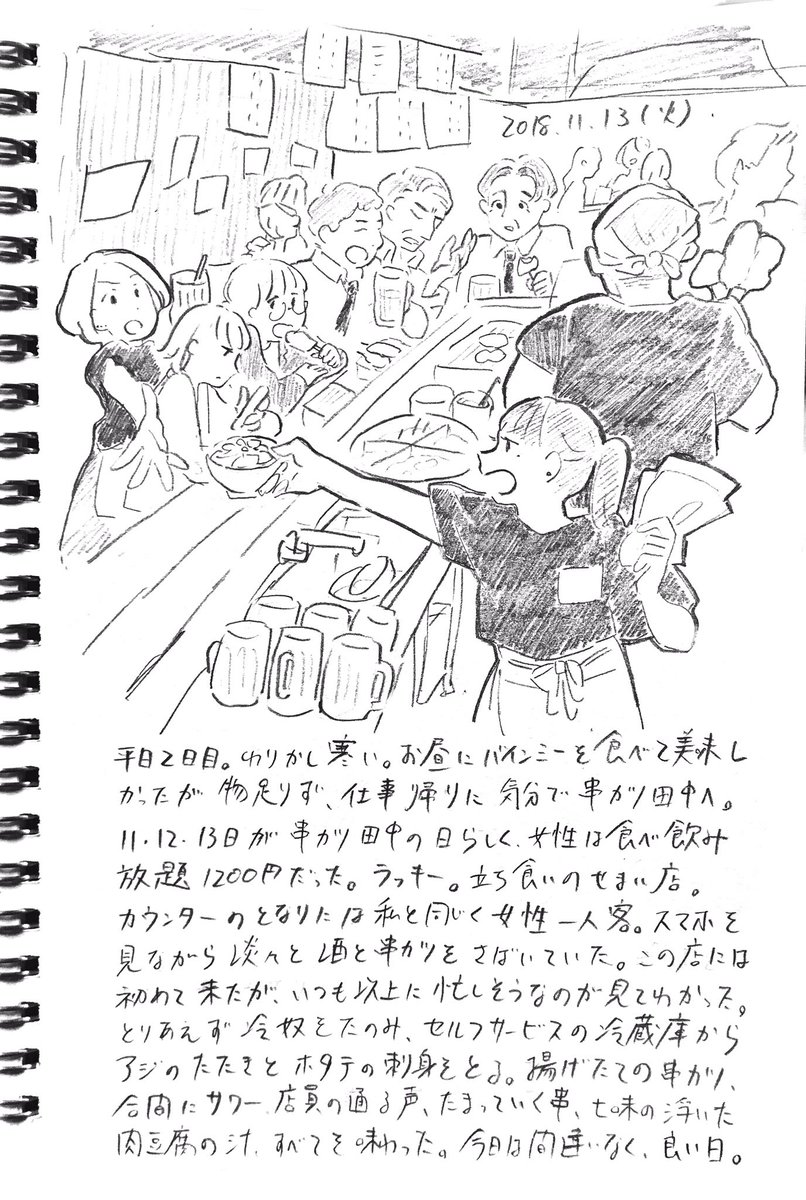 2018.11.13(火)
平日2日目。わりかし寒い。お昼にバインミーを食べて美味し
かったが物足りず、仕事帰りに気分で串カツ田中へ。
11・12・13日が串カツ田中の日らしく、女性は食べ飲み
放題1200円だった。ラッキー。立ち食いのせまい店。
カウンターのとなりには私と同じく女性一人客。スマホを
見ながら淡々と酒と串カツをさばいていた。この店には
初めて来たが、いつも以上に忙しそうなのが見てわかった。
とりあえず冷奴をたのみ、セルフサービスの冷蔵庫から
アジのたたきとホタテの刺身をとる。揚げたての串カツ、
合間にサワー、店員の通る声、たまっていく串、七味の浮いた
肉豆腐の汁、すべてを味わった。今日は間違いなく、良い日。